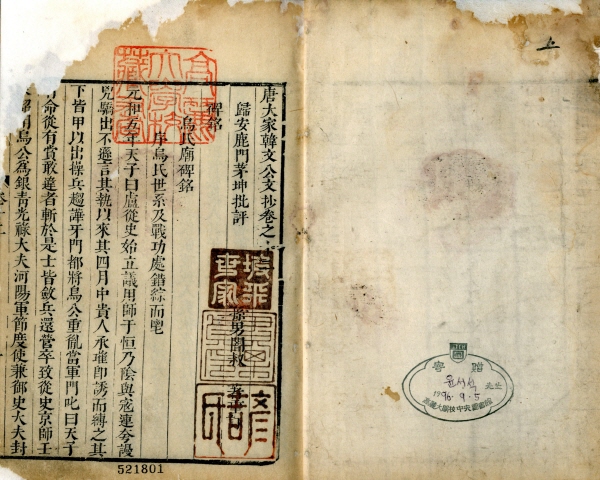 上
唐大家韓文公文抄卷之
歸安鹿門茅坤批評
碑銘
烏氏廟碑銘
序烏氏世系及戰功處錯綜而鬯
元和五年天子曰盧從史始立議用師于恒乃陰與寇連夸謾
兇驕出不遜言其執以來其四月中貴人承璀即誘而縛之其
下皆甲以出操兵趨譁牙門都將烏公重胤當軍門叱曰天子
命從有賞敢違者斬於是士皆斂兵還營卒致從史京師壬
烏公爲銀青光祿大夫河陽軍節度使兼御史大夫封
孫男闇叔
高麗大學校藏書
坡平
521801
寄贈
1996.9.5
高麗大學校中央圖書館